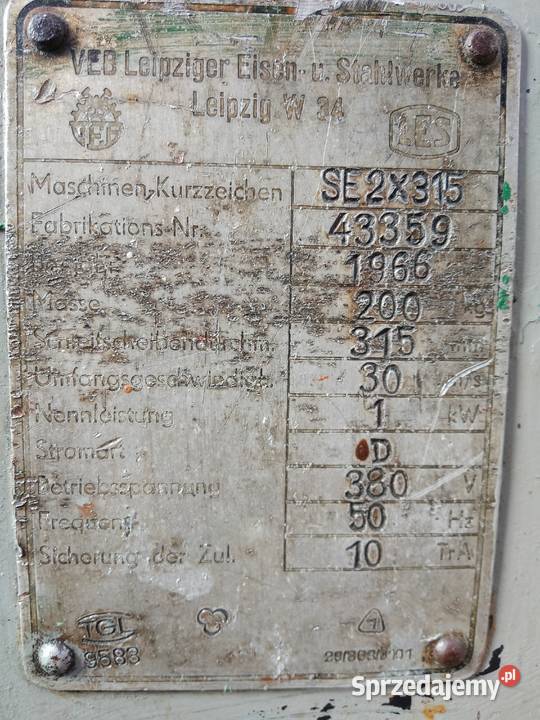 VEB Leipziger Eisen- u. Stahlwerke
Leipzig W 34
VEB
LES
Maschinen-Kurzzeichen SE2X315
Fabrikations-Nr. 43359
1966
Masse 200 kg
Schleifscheibendurchm. 315 mm
Umfangsgeschwindigk. 30 m/s
Nennleistung 1 kW
Stromart D
Betriebsspannung 380 V
Frequenz 50 Hz
Sicherung der Zul. 10 TrA
TGL
9583
1
Sprzedajemy.pl